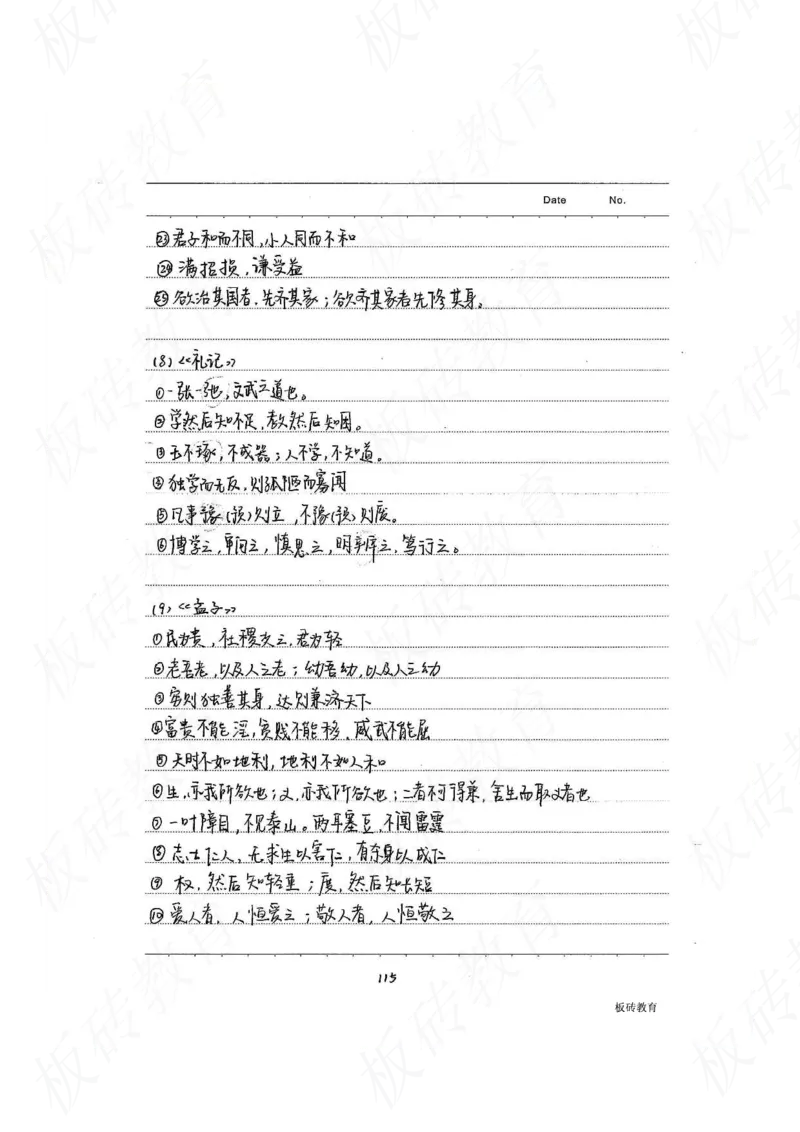 Date No.
㉓君子和而不同,小人同而不和
㉔满招损,谦受益
㉕欲治其国者,先齐其家;欲齐其家者先修其身。
(8)《礼记》
①一张一弛,文武之道也。
②学然后知不足,教然后知困。
③玉不琢,不成器;人不学,不知道。
④独学而无友,则孤陋而寡闻
⑤凡事豫(预)则立,不豫(预)则废。
⑥博学之,审问之,慎思之,明辨之,笃行之。
(9)《孟子》
①民为贵,社稷次之,君为轻
②老吾老,以及人之老;幼吾幼,以及人之幼
③穷则独善其身,达则兼济天下
④富贵不能淫,贫贱不能移,威武不能屈
⑤天时不如地利,地利不如人和
⑥生,亦我所欲也;义,亦我所欲也;二者不可得兼,舍生而取义者也
⑦一叶障目,不见泰山。两耳塞豆,不闻雷霆
⑧志士仁人,无求生以害仁,有杀身以成仁
⑨权,然后知轻重;度,然后知长短
⑩爱人者,人恒爱之;敬人者,人恒敬之
115
板砖教育